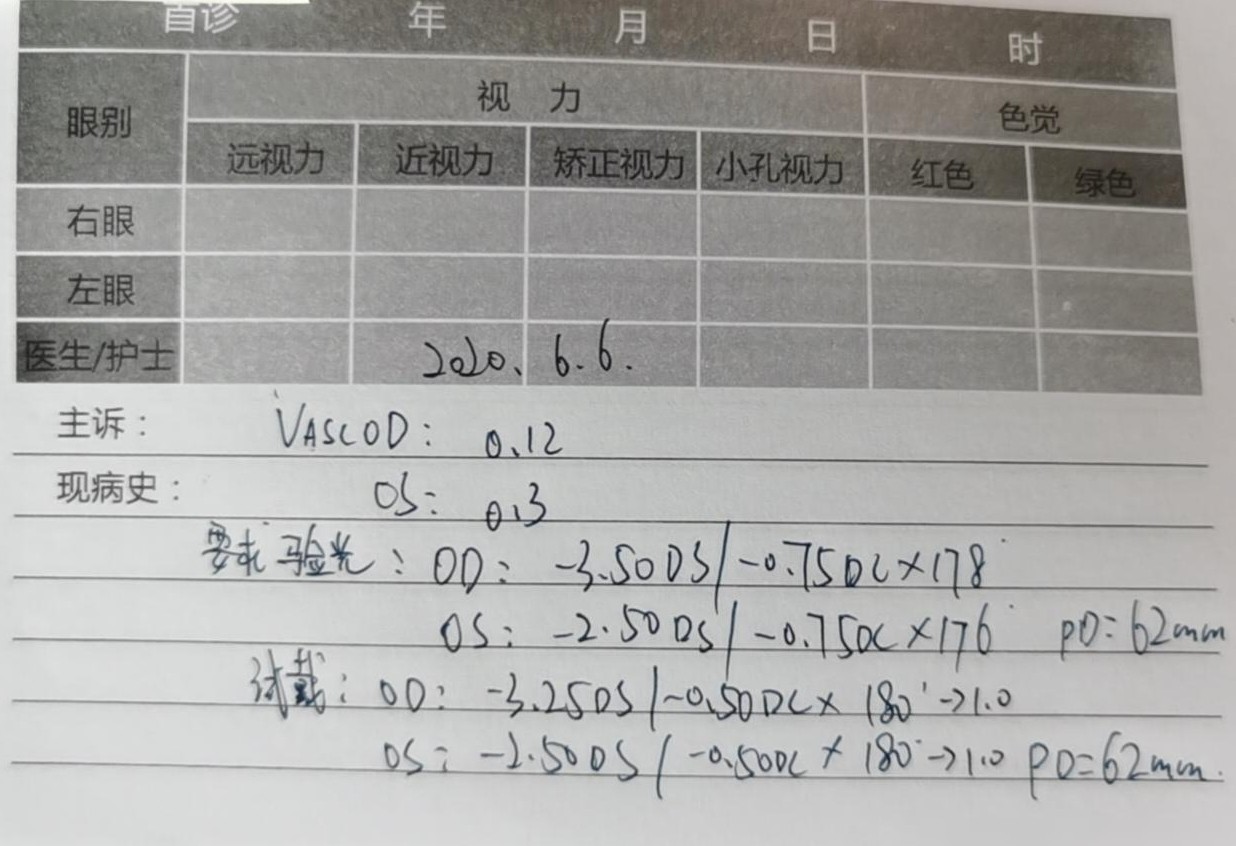 首诊 年 月 日 时
眼别 视力 色觉
远视力 近视力 矫正视力 小孔视力 红色 绿色
右眼
左眼
医生/护士 2020、6.6.
主诉： VASCOD: 0.12
现病史： OS: 0.3
要求验光：OD: -3.50DS/-0.75DC×178°
OS: -2.50DS/-0.75DC×176° PD=62mm
试戴：OD: -3.25DS/-0.50DC×180°→1.0
OS: -2.50DS/-0.50DC×180°→1.0 PD=62mm.